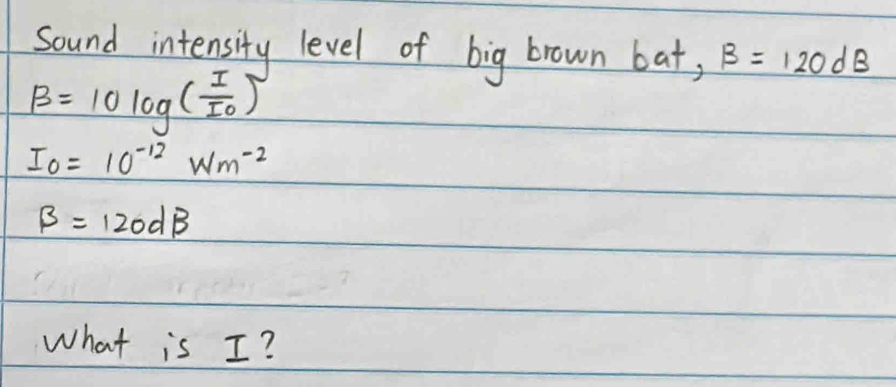 Sound intensity level of big brown bat, β = 120dB
β = 10 log(I/I0)
I0 = 10^-12 Wm^-2
β = 120dB
What is I?